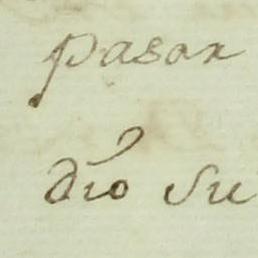 pasar
dió su